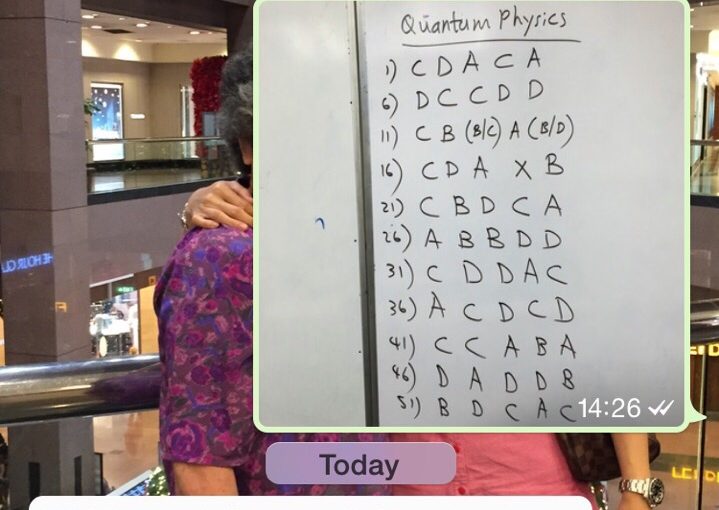 Quantum Physics
1) C D A C A
6) D C C D D
11) C B (B/C) A (B/D)
16) C D A X B
21) C B D C A
26) A B B D D
31) C D D A C
36) A C D C D
41) C C A B A
46) D A D D B
51) B D C A C
14:26
Today